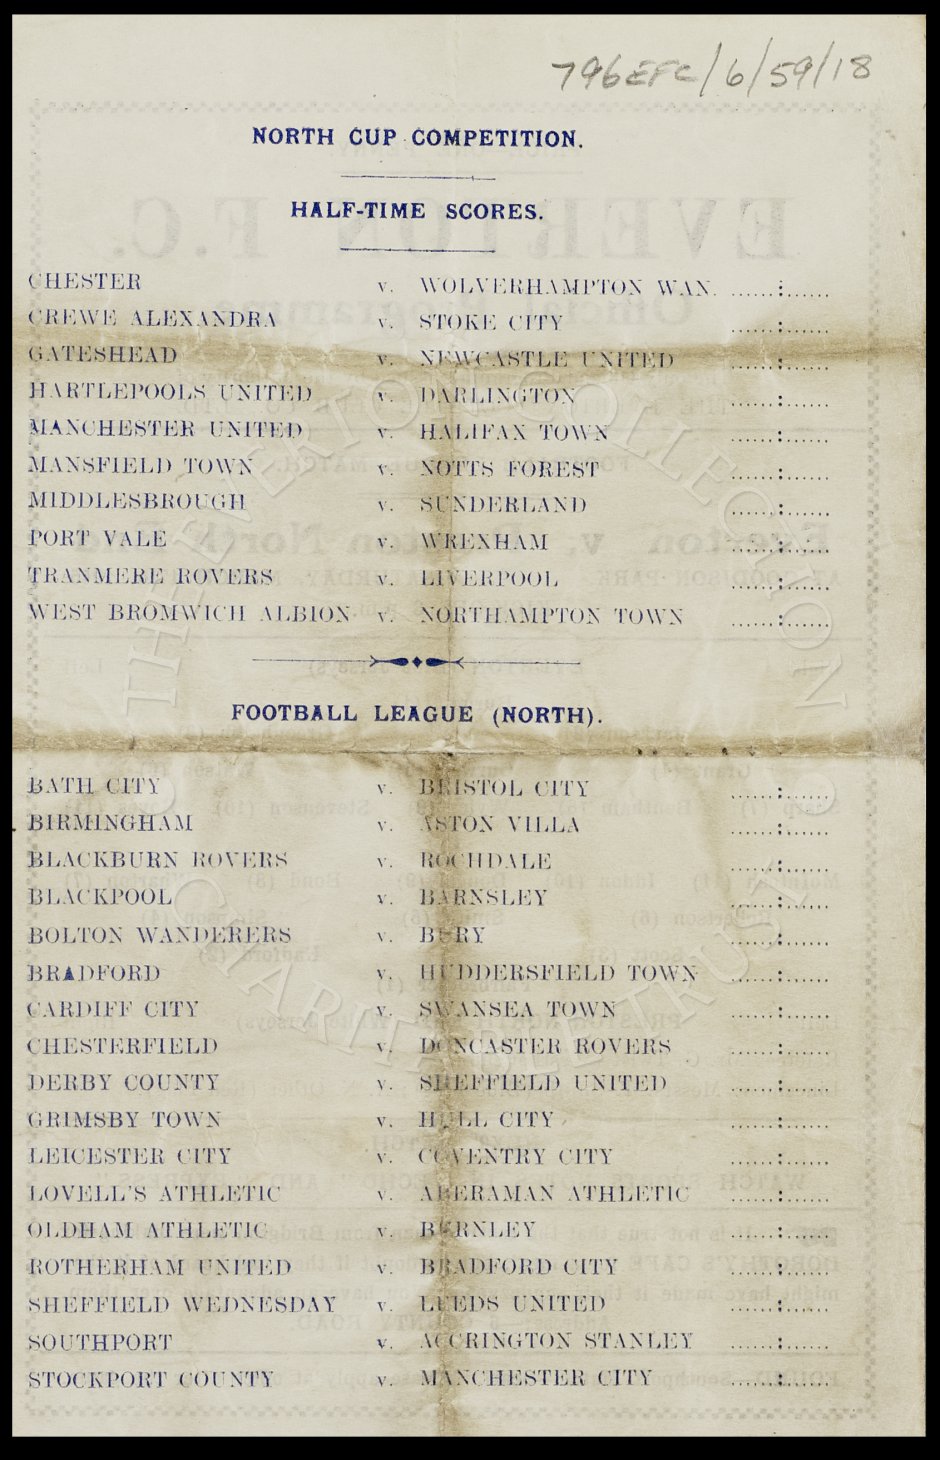 796EFC/6/59/18
NORTH CUP COMPETITION.
HALF-TIME SCORES.
CHESTER v. WOLVERHAMPTON WAN. ......:......
CREWE ALEXANDRA v. STOKE CITY ......:......
GATESHEAD v. NEWCASTLE UNITED ......:......
HARTLEPOOLS UNITED v. DARLINGTON ......:......
MANCHESTER UNITED v. HALIFAX TOWN ......:......
MANSFIELD TOWN v. NOTTS FOREST ......:......
MIDDLESBROUGH v. SUNDERLAND ......:......
PORT VALE v. WREXHAM ......:......
TRANMERE ROVERS v. LIVERPOOL ......:......
WEST BROMWICH ALBION v. NORTHAMPTON TOWN ......:......
FOOTBALL LEAGUE (NORTH).
BATH CITY v. BRISTOL CITY ......:......
BIRMINGHAM v. ASTON VILLA ......:......
BLACKBURN ROVERS v. ROCHDALE ......:......
BLACKPOOL v. BARNSLEY ......:......
BOLTON WANDERERS v. BURY ......:......
BRADFORD v. HUDDERSFIELD TOWN ......:......
CARDIFF CITY v. SWANSEA TOWN ......:......
CHESTERFIELD v. DONCASTER ROVERS ......:......
DERBY COUNTY v. SHEFFIELD UNITED ......:......
GRIMSBY TOWN v. HULL CITY ......:......
LEICESTER CITY v. COVENTRY CITY ......:......
LOVELL'S ATHLETIC v. ABERAMAN ATHLETIC ......:......
OLDHAM ATHLETIC v. BURNLEY ......:......
ROTHERHAM UNITED v. BRADFORD CITY ......:......
SHEFFIELD WEDNESDAY v. LEEDS UNITED ......:......
SOUTHPORT v. ACCRINGTON STANLEY ......:......
STOCKPORT COUNTY v. MANCHESTER CITY ......:......
THE EVERTON COLLECTION
CHARITABLE TRUST